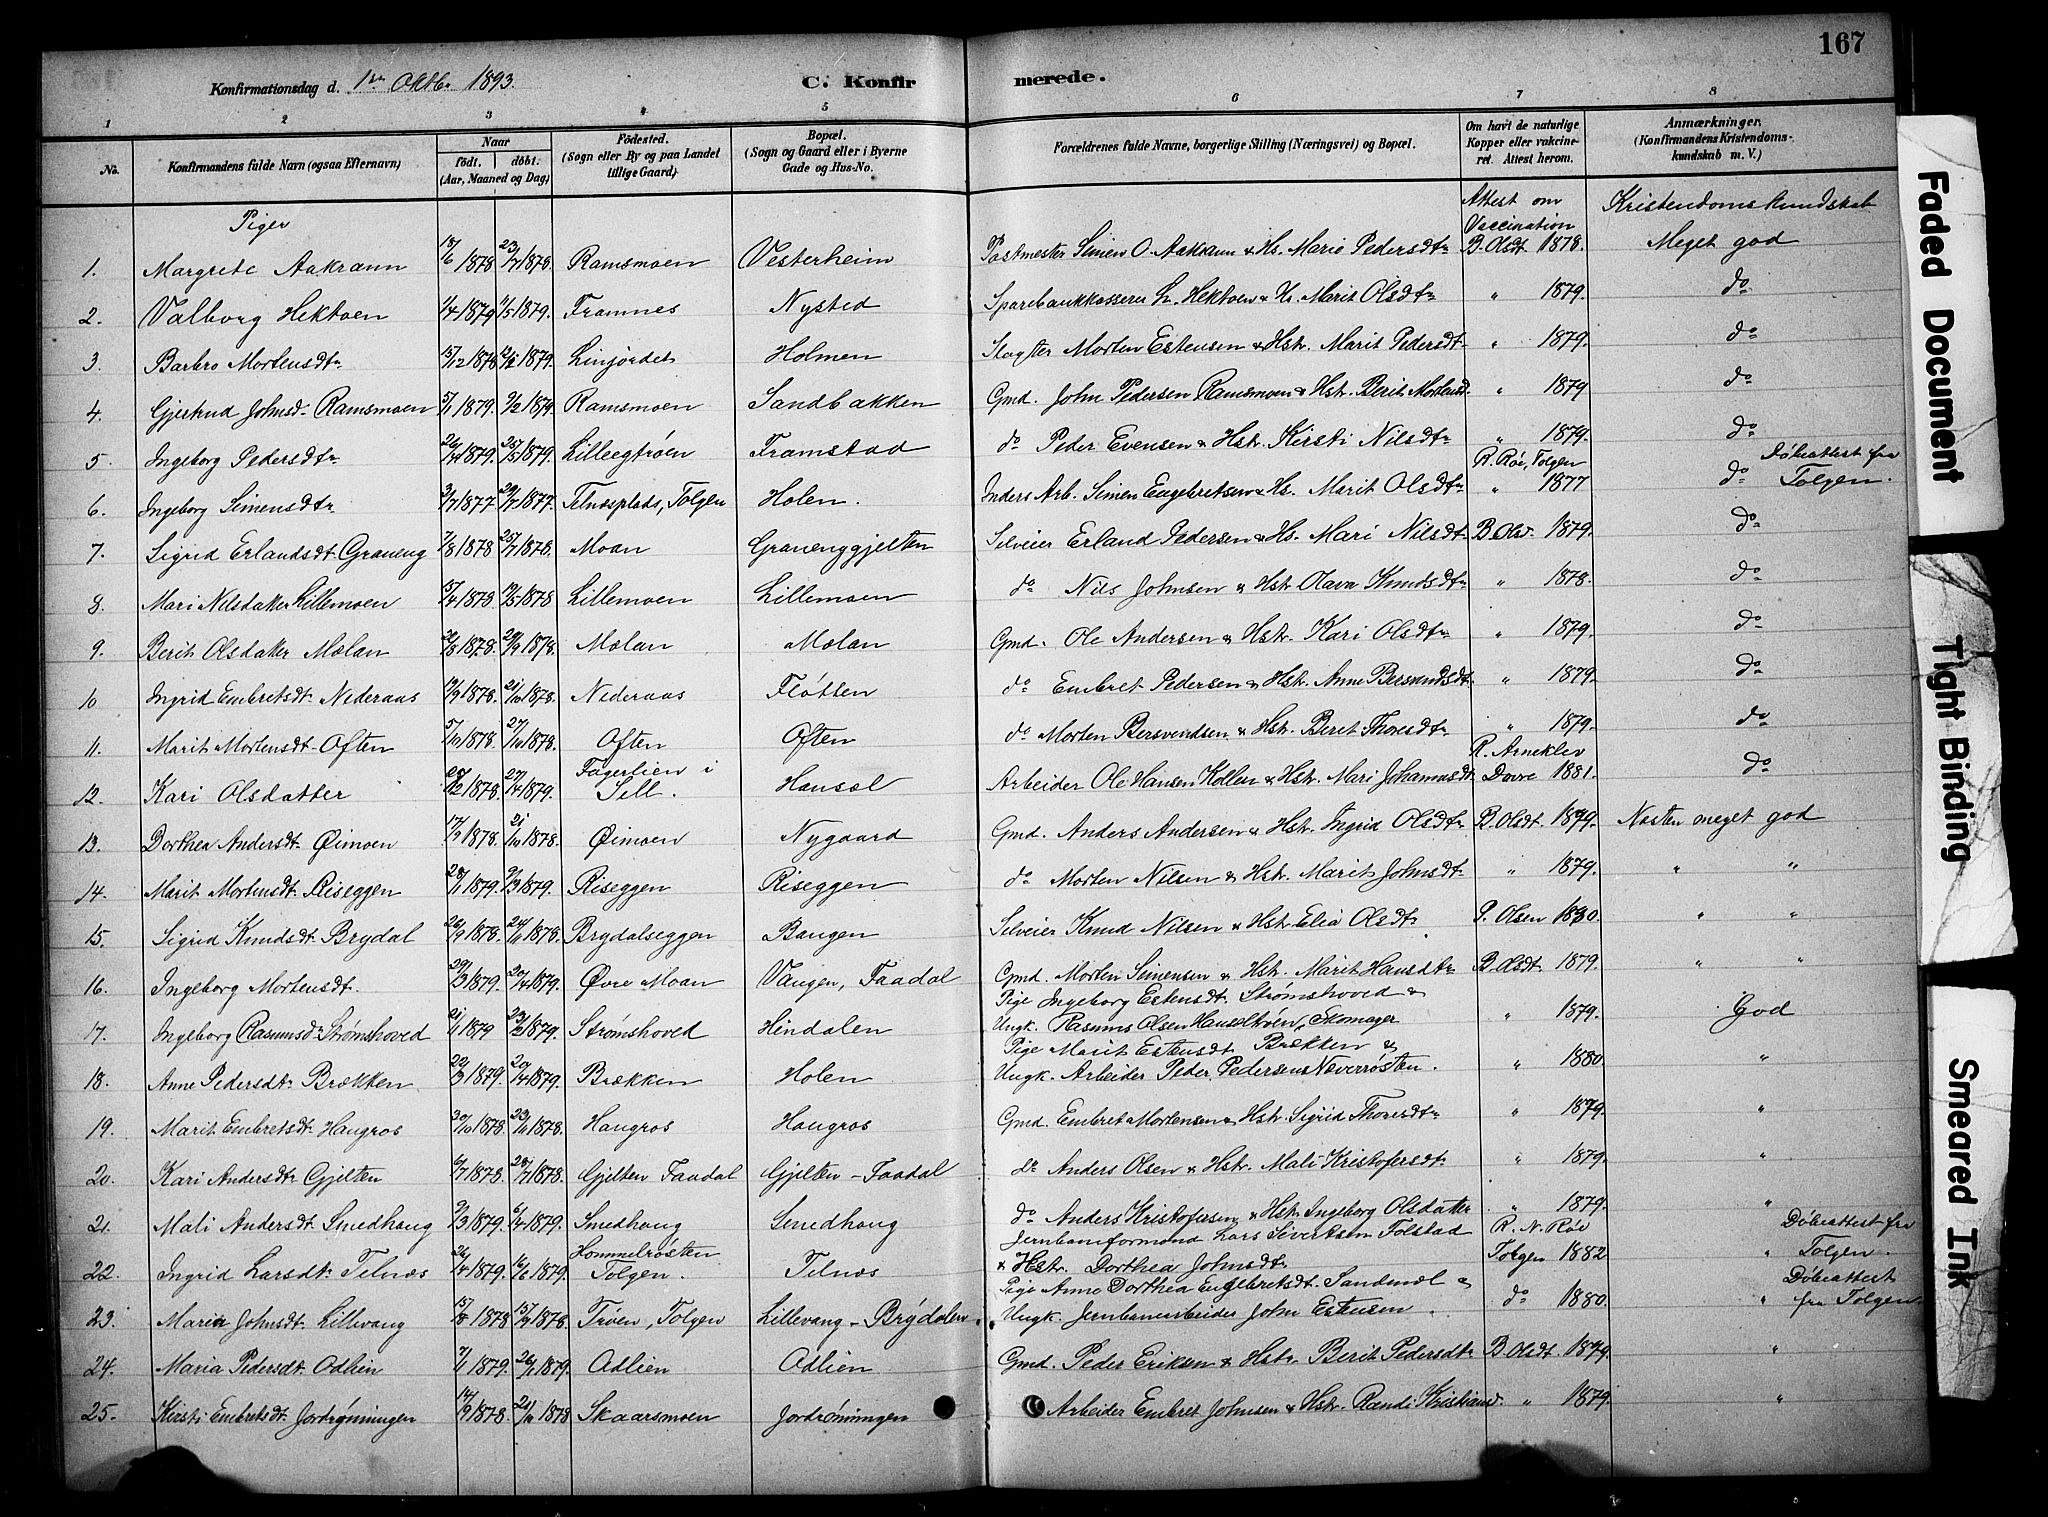 167
Konfirmationsdag d. 1ste Oktb. 1893.
C. Konfirmerede.
1 2 3 4 5 6 7 8
No. Konfirmandens fulde Navn (ogsaa Efternavn) Naar födt. döbt. (Aar, Maaned og Dag) Födested. (Sogn eller By og paa Landet tillige Gaard) Bopæl. (Sogn og Gaard eller i Byerne Gade og Hus-No. Forældrenes fulde Navne, borgerlige Stilling (Næringsvei) og Bopæl. Om havt de naturlige Kopper eller vakcineret. Attest herom. Anmærkninger. (Konfirmandens Kristendomskundskab m. V.)
Piger Attest om Vaccination Kristendomskundskab
1. Margrete Aakrann 18/6 1878 23/7 1878. Ramsmoen Vesterheim Postmester Simen O. Aakrann & Hs. Marie Pedersdtr B. Olsdt 1878. Meget god
2. Valborg Hektoen 1/4 1879 11/5 1879. Framnes Nysted Sparebankkasserer L. Hektoen & Hs. Marit Olsdtr " 1879. do
3. Barbro Mortensdtr 15/12 1878 12/2 1879. Linjordet Holmen Slagter Morten Estensen & Hstr. Marit Pedersdtr " 1879. do
4. Gjertrud Johnsdr Ramsmoen 5/1 1879. 9/2 1879. Ramsmoen Sandbakken Gmd. John Pedersen Ramsmoen & Hstr. Berit Mortensd. " 1879 do
5. Ingeborg Pedersdtr 26/4 1879. 25/5 1879. Lilleegtrøen Framstad do Peder Evensen & Hstr. Kirsti Nilsdtr " 1879. do
6. Ingeborg Simensdtr 3/7 1877 29/7 1877. Telnæsplads, Tolgen Holen. Inders. Arb. Simen Engebretsen & Hs. Marit Olsdtr R. Røe, Tolgen " 1877 do Døbeattest fra Tolgen.
7. Sigrid Erlandsdt Graneng 7/8 1878 25/7 1878. Moan Granenggjelten Selveier Erland Pedersen & Hs. Mari Nilsdt B. Olsdt. 1879. do
8. Mari Nilsdatter Lillemoen 15/4 1878 19/5 1878 Lillemoen Lillemoen do Nils Johnsen & Hstr Olava Knudsdtr " 1878. do
9. Berit Olsdatter Mælan 22/8 1878. 29/9 1878. Mælan Mælan Gmd. Ole Andersen & Hstr. Kari Olsdtr " 1879. do
10 Ingrid Embretsdt. Nederaas 19/9 1878. 21/10 1878. Nederaas Fløtten do Embret Pedersen & Hstr. Anne Bersvendsdt. " 1879. do
11. Marit Mortensdt. Often 5/10 1878. 27/10 1878. Often Often do Morten Bersvendsen & Hstr. Berit Thoresdtr " 1879. do
12. Kari Olsdatter 28/12 1878. 27/4 1879. Fagerlien i Sell. Hansæl Arbeider Ole Hansen Kollen & Hstr. Mari Johannesdt R. Arneklev Dovre 1881. do
13. Dorthea Andersdt. Øimoen 17/9 1878. 21/10 1878. Øimoen Nygaard Gmd. Anders Andersen & Hstr. Ingrid Olsdtr B. Olsdt. 1879. Næsten meget god
14. Marit Mortensdt. Riseggen 28/1 1879. 9/3 1879. Riseggen Riseggen do Morten Nilsen & Hstr. Marit Johnsdtr " 1879. " "
15. Sigrid Knudsdt. Brydal 26/9 1878. 24/11 1878. Brydalseggen Baugen Selveier Knud Nilsen & Hstr. Elia Olsdtr P. Olsen 1880. " "
16. Ingeborg Mortensdt. 29/3 1879. 20/4 1879. Øvre Moan Vangen, Faadal Gmd. Morten Simensen & Hstr. Marit Hansdtr B. Olsdt. 1879. " "
17. Ingeborg Rasmusdr Strømshoved 21/1 1879 23/2 1879. Strømshoved Hindalen Pige Ingeborg Estensdt. Strømshoved & Ungk. Rasmus Olsen Hanseltrøen, Skomager " 1879. God
18. Anne Pedersdtr Brækken 22/3 1879. 20/4 1879. Brækken Holen Pige Marit Estensdt. Brækken & Ungk. Arbeider Peder Pedersen Næverrøsten. " 1880. "
19. Marit Embretsdt. Haugros 30/10 1878. 23/11 1878. Haugros Haugros Gmd. Embret Mortensen & Hstr. Sigrid Thoresdtr " 1879. "
20. Kari Andersdtr Gjelten 6/7 1878. 28/7 1878. Gjelten Faadal Gjelten - Faadal do Anders Olsen & Hstr. Mali Kristofersdtr " 1879. "
21. Mali Andersdt. Smedhaug 9/3 1879. 6/4 1879. Smedhaug Smedhaug do Anders Kristofersen & Hstr. Ingeborg Olsdatter " 1879. "
22. Ingrid Larsdtr Telnæs 26/4 1879. 16/6 1879. Hommelrøsten Tolgen. Telnæs Jernbaneformand Lars Sivertsen Tolstad & Hstr. Dorthea Johnsdtr R. N. Røe Tolgen 1882 " Døbeattest fra Tolgen.
23. Maria Johnsdt. Lillevang 15/8 1878 15/9 1878. Trøen, Tolgen Lillevang - Brydalen. Pige Anne Dorthea Engebretsdt. Sandmæl & Ungk. Jernbanearbeider John Estensen. do 1880. " Døbeattest fra Tolgen
24. Maria Pedersdt. Odlien 7/1 1879. 26/1 1879. Odlien Odlien Gmd. Peder Eriksen & Hstr. Berit Pedersdtr B. Olsdt. 1879. "
25. Kirsti Embretsdt. Jordrønningen 14/9 1878. 21/10 1878 Skaarsmoen Jordrønningen Arbeider Embret Johnsen & Hstr. Randi Kristiansd. " 1879. "
Faded Document
Tight Binding
Smeared Ink